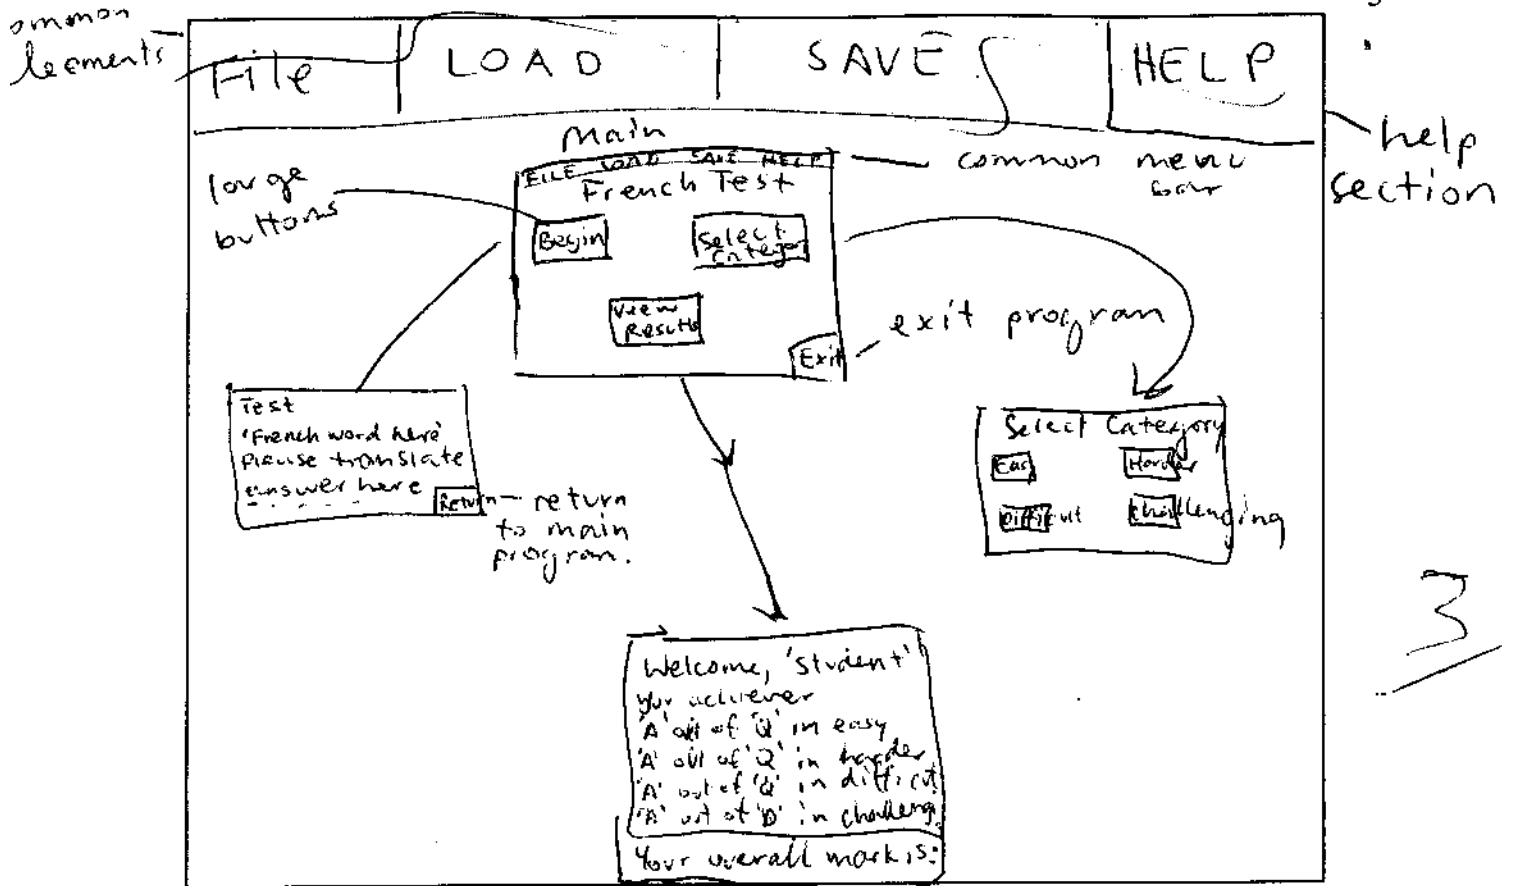 ommon
leements
File LOAD SAVE HELP
help
section
Main
FILE LOAD SAVE HELP
common menu
bar
French Test
large
buttons
Begin
Select
Categor
View
Results
Exit
exit program
Test
'French word here'
Please translate
answer here
Return
return
to main
program.
Select Category
Easy
Harder
Difficult
Challenging
3
Welcome, 'Student'
You achiever
'A' out of 'Q' in easy
'A' out of 'Q' in harder
'A' out of 'Q' in diffict
'A' out of 'Q' in challeng.
Your overall mark is: